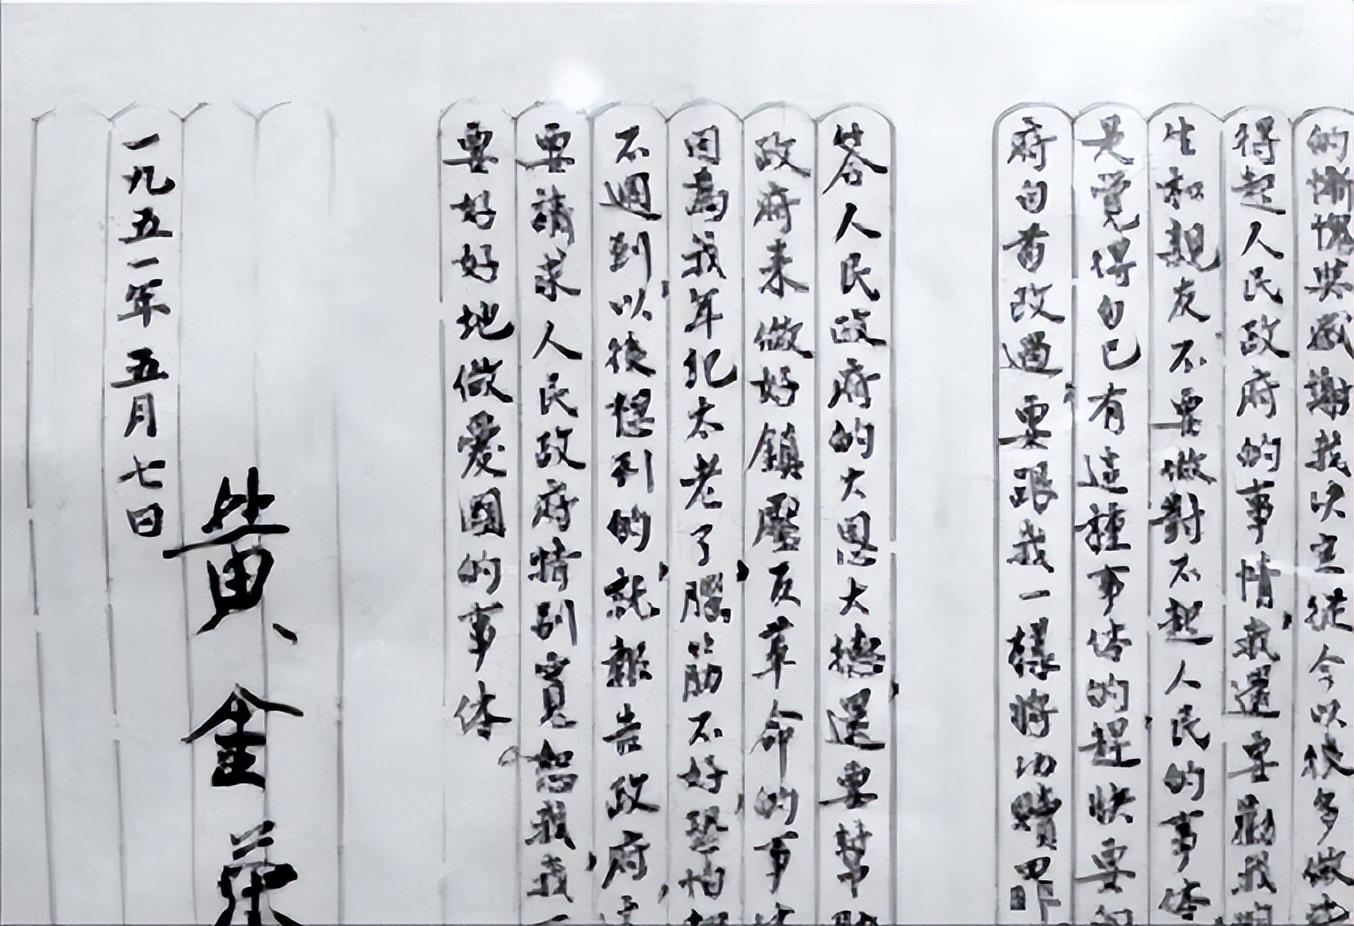 的慚愧與感謝我决定從今以後多做
得起人民政府的事情，我還要勸我的
生和親友不要做對不起人民的事体，
是覺得自已有這種事体的趕快要
府自首改過，要跟我一樣將功贖罪
答人民政府的大恩大德，還要幫助
政府來做好鎮壓反革命的事
因為我年纪太老了，腦筋不好，恐怕
不週到，以後想到的，就報告政府，
要請求人民政府特别寬恕我，我一
要好好地做愛國的事体。
黄金荣
一九五一年五月七日